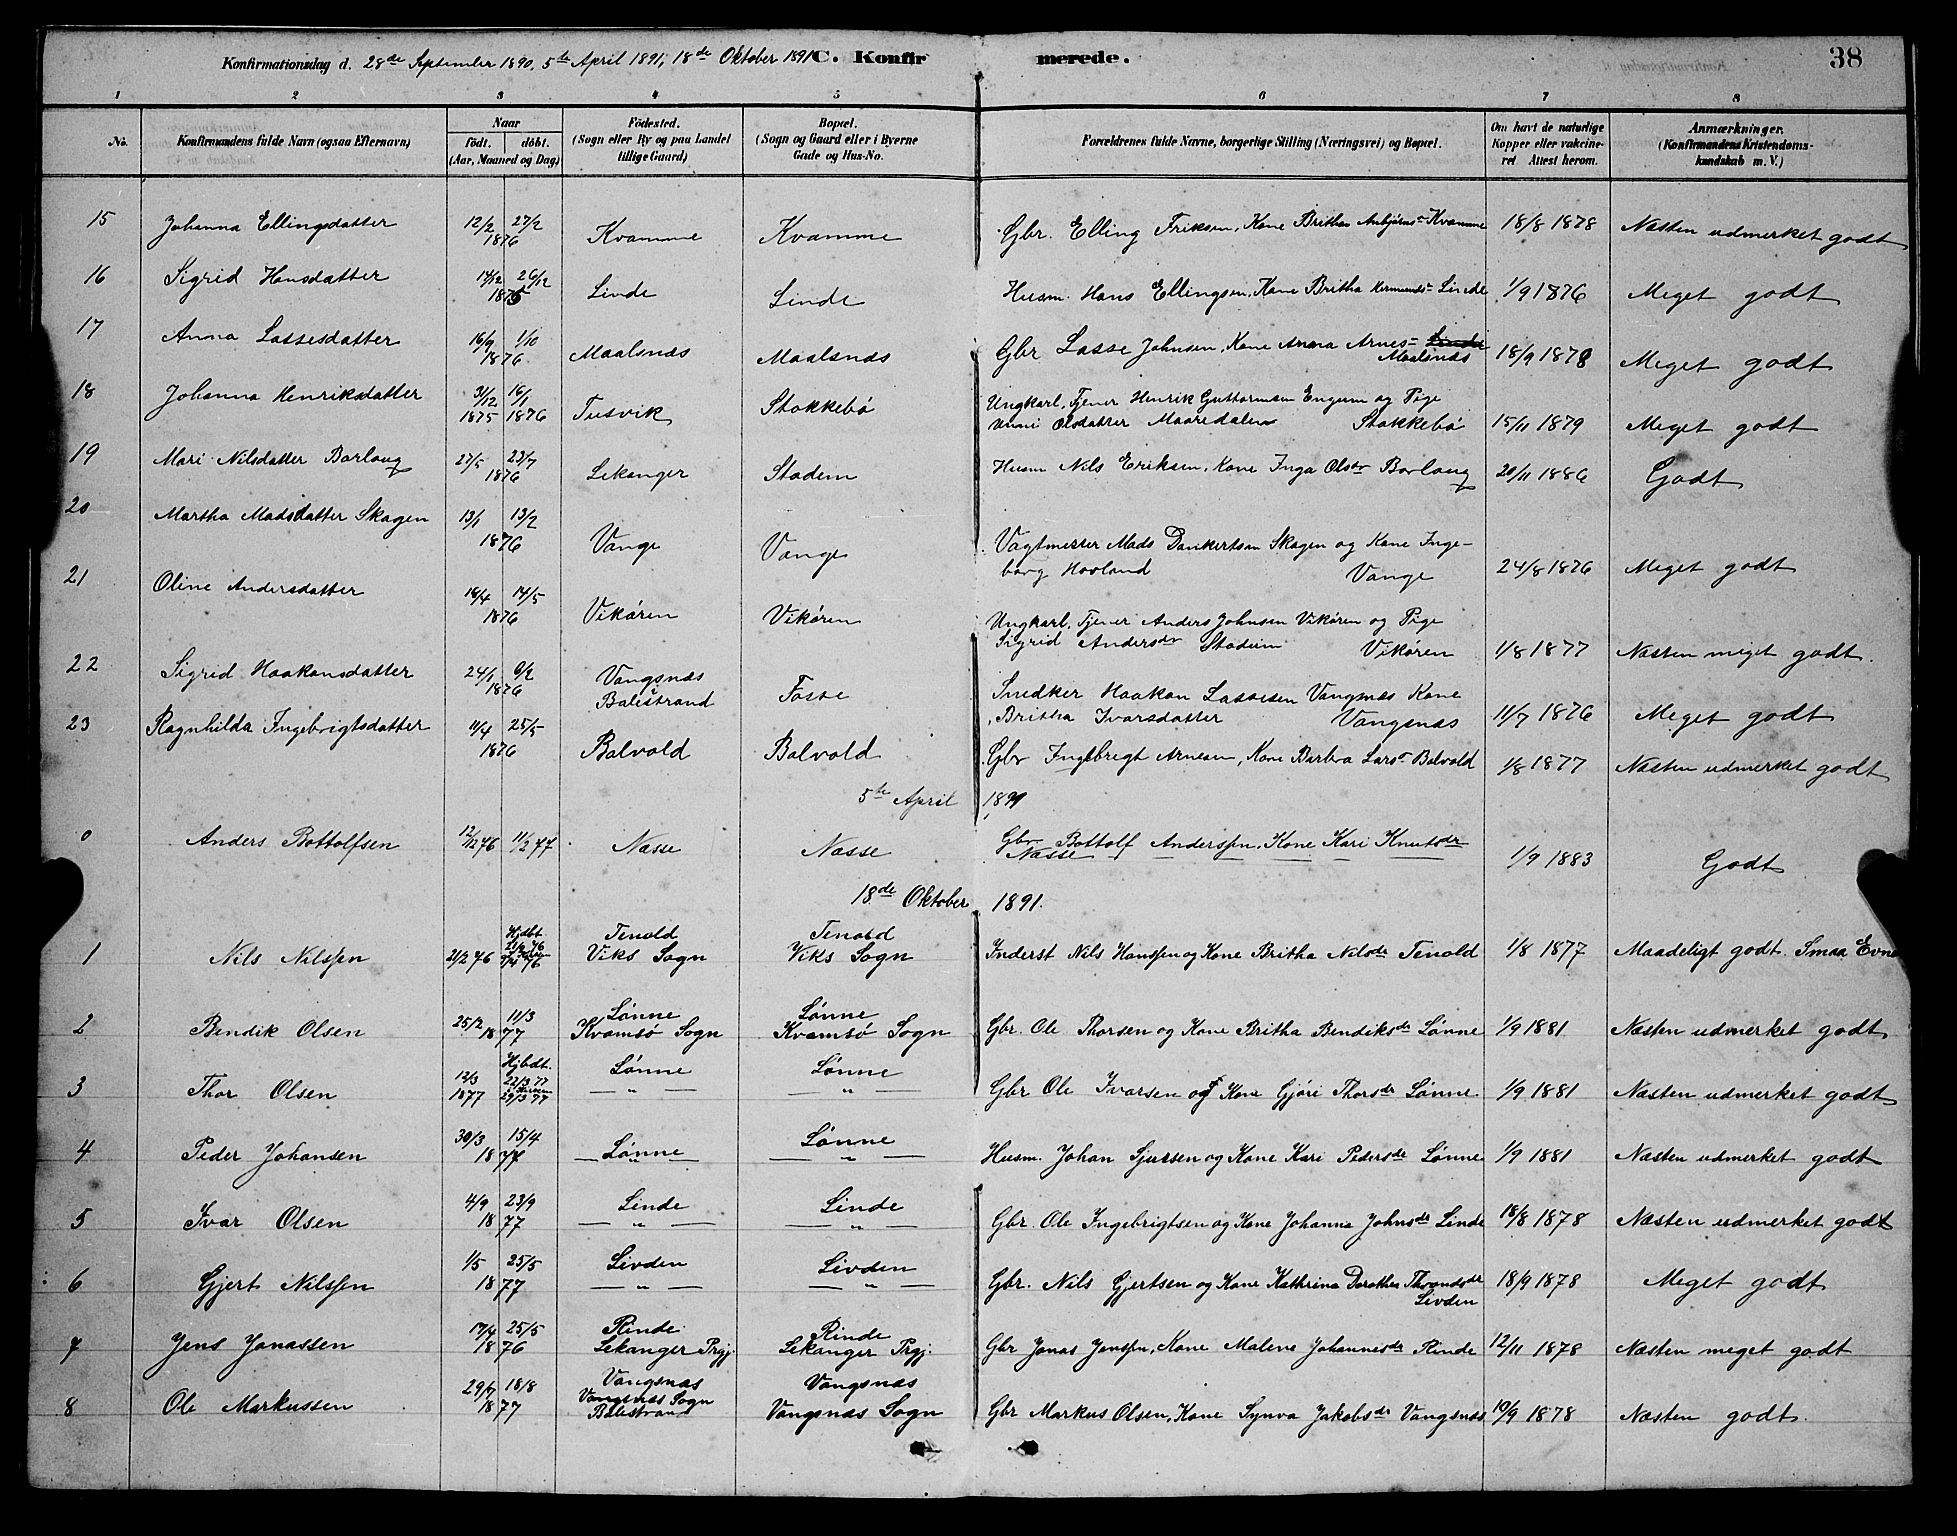 Konfirmationsdag d. 28de September 1890, 5te April 1891, 18de Oktober 1891 C. Konfirmerede. 38
1 2 3 4 5 6 7 8
No. Konfirmandens fulde Navn (ogsaa Efternavn) Naar födt. döbt. (Aar, Maaned og Dag) Födested. (Sogn eller By og paa Landet tillige Gaard) Bopæl. (Sogn og Gaard eller i Byerne Gade og Hus-No. Forældrenes fulde Navne, borgerlige Stilling (Næringsvei) og Bopæl. Om havt de naturlige Kopper eller vakcineret Attest herom. Anmærkninger. (Konfirmandens Kristendomskundskab m. V.)
15 Johanna Ellingsdatter 12/2 27/2 1876 Kvamme Kvamme Gbr. Elling Eriksen, Kone Britha Anbjørns- Kvamme 18/8 1878 Næsten udmerket godt
16 Sigrid Hansdatter 14/12 26/12 1875 Linde Linde Husm. Hans Ellingsen, Kone Britha Hermunds- Linde 1/9 1876 Meget godt
17 Anna Lassesdatter 16/9 1/10 1876 Maalsnæs Maalsnæs Gbr Lasse Johnsen, Kone Anna Arnes- Linde
Maalsnæs 18/9 1878 Meget godt
18 Johanna Henriksdatter 31/12 1875 16/1 1876 Tusvik Stokkebø Ungkarl, Tjener Henrik Guttormsen Engum og Pige
Unni Olsdatter Maaredalen Stokkebø 15/11 1879 Meget godt
19 Mari Nilsdatter Borlaug 27/5 23/7 1876 Lekanger Stadem Husm Nils Eriksen, Kone Inga Olsdr Borlaug 20/11 1886 Godt
20 Martha Madsdatter Skagen 13/1 13/2 1876 Vange Vange Vagtmester Mads Dankertsen Skagen og Kone Inge-
borg Hovland Vange 24/8 1876 Meget godt
21 Oline Andersdatter 16/4 14/5 1876 Vikøren Vikøren Ungkarl, Tjener Anders Johnsen Vikøren og Pige
Sigrid Andersdr Stadeim Vikøren 1/8 1877 Næsten meget godt.
22 Sigrid Haakonsdatter 24/1 6/2 1876 Vangsnæs
Balestrand Fosse Snedker Haakon Lassesen Vangsnæs Kone
Britha Ivarsdatter Vangsnæs 11/7 1876 Meget godt
23 Ragnhilda Ingebrigtsdatter 11/4 25/5 1876 Bolvold Bolvold Gbr Ingebregt Arnesen, Kone Barbra Lars- Bolvold 1/8 1877 Næsten udmerket godt
5te April 1891
0 Anders Bottolfsen 12/12 76 11/2 77 Næsse Næsse Gbr Bottolf Andersen, Kone Kari Knutsdr
Næsse 1/9 1883 Godt
18de Oktober 1891.
1 Nils Nilssen 21/2 76 Hjdbt. 21/2 76 2/4 76 Tenold
Viks Sogn Tenold
Viks Sogn Inderst Nils Hanssen og Kone Britha Nilsdr Tenold 1/8 1877 Maadeligt godt. Smaa Evne
2 Bendik Olsen 25/2 11/3 1877 Lønne
Kvamsø Sogn Lønne
Kvamsø Sogn Gbr. Ole Thorsen og Kone Britha Bendiksdr Lønne 1/9 1881 Næsten udmerket godt
3 Thor Olsen 12/3 1877 Hjbdt. 22/3 77 29/3 77 Lønne
— „ — Lønne
— „ — Gbr Ole Ivarsen og Kone Gjøri Thorsdr Lønne 1/9 1881 Næsten udmerket godt
4 Peder Johansen 30/3 15/4 1877 Lønne
— „ — Lønne
— „ — Husm. Johan Sjursen og Kone Kari Pedersdr Lønne 1/9 1881 Næsten udmerket godt
5 Ivar Olsen 4/9 23/9 1877 Linde
— „ — Linde
— „ — Gbr Ole Ingebrigtsen og Kone Johanna Johnsdr Linde 18/8 1878 Næsten udmerket godt
6 Gjert Nilssen 1/5 25/5 1877 Livden
— „ — Livden
— „ — Gbr. Nils Gjertsen og Kone Kathrina Dorothea Throndsdr
Livden 18/9 1878 Meget godt
7 Jens Jonassen 17/4 25/5 1876 Rinde
Lekanger Prgj. Rinde
Lekanger Prgj. Gbr Jonas Jenssen, Kone Malene Johannesdr Rinde 12/11 1878 Næsten meget godt
8 Ole Markussen 29/7 18/8 1877 Vangsnæs
Vangsnæs Sogn
Balestrand Vangsnæs
Vangsnæs Sogn Gbr Markus Olsen, Kone Synva Jakobsdr Vangsnæs 10/9 1878 Næsten godt.